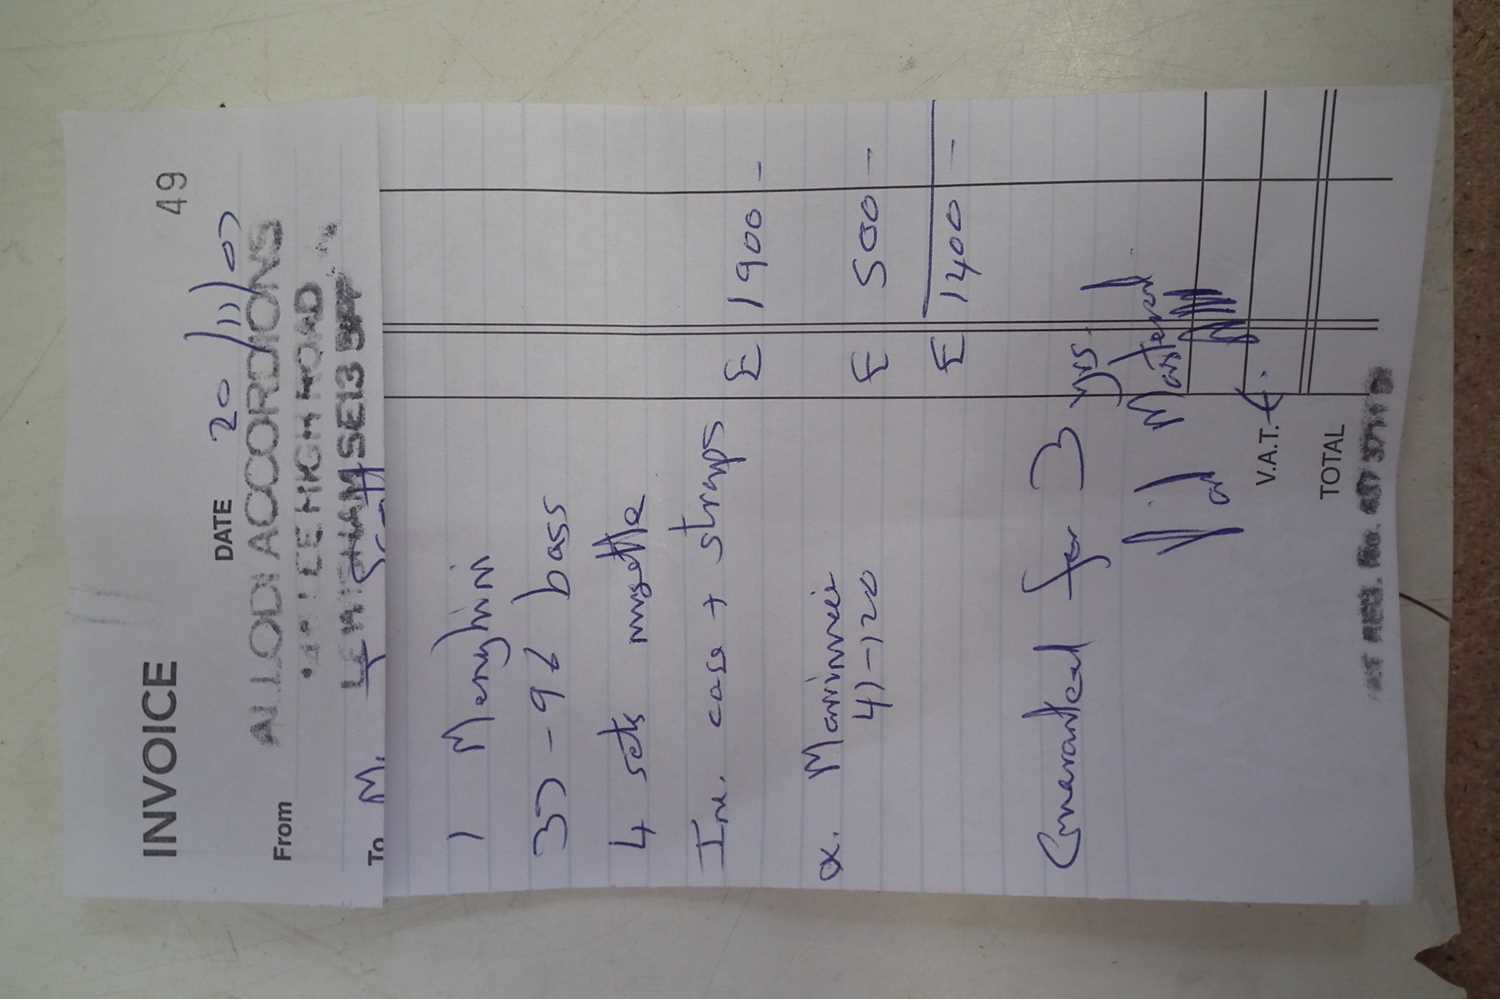 INVOICE 49
DATE 20/11/07
From ALLODI ACCORDIONS
LEE HIGH ROAD
LEWISHAM SE13
To M.
1 Menghini
37-96 bass
4 sets musette
Inc. case + straps £ 1900 -
Marinucci
41-120 £ 500 -
£ 1400 -
Guaranteed for 3 yrs
V.A.T.
TOTAL